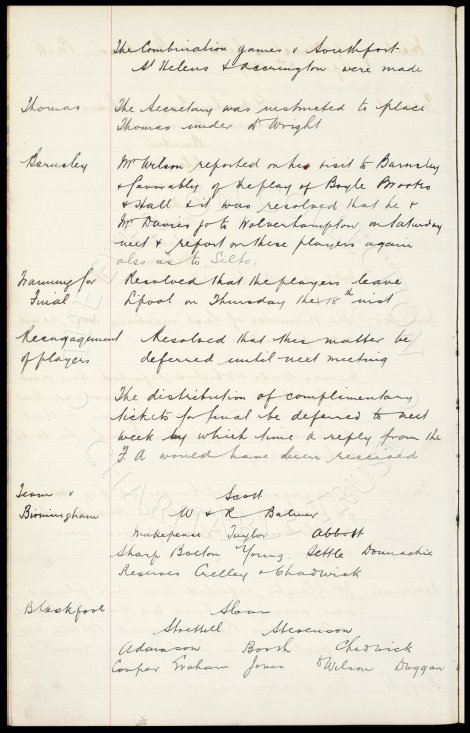 The Combination games v Southport
St Helens & Accrington were made
Thomas The Secretary was instructed to place
Thomas under Dr Wright
Barnsley Mr Wilson reported on his visit to Barnsley
& favorably of the play of Boyle Brooks
& Hall & it was resolved that he &
Mr Davies go to Wolverhampton on Saturday
next & report on these players again
also as to Silto.
Training for Final Resolved that the players leave
L'pool on Thursday the 18th inst
Reengagement of players Resolved that this matter be
deferred until next meeting
The distribution of complimentary
tickets for final be deferred to next
week by which time a reply from the
F. A would have been received
Team v Birmingham Scott
W & R Balmer
Makepeace Taylor Abbott
Sharp Bolton Young Settle Donnachie
Reserves Crelley & Chadwick
Blackpool Sloan
Strettell Stevenson
Adamson Booth Chadwick
Couper Graham Jones & Wilson Duggan
THE EVERTON COLLECTION
CHARITABLE TRUST